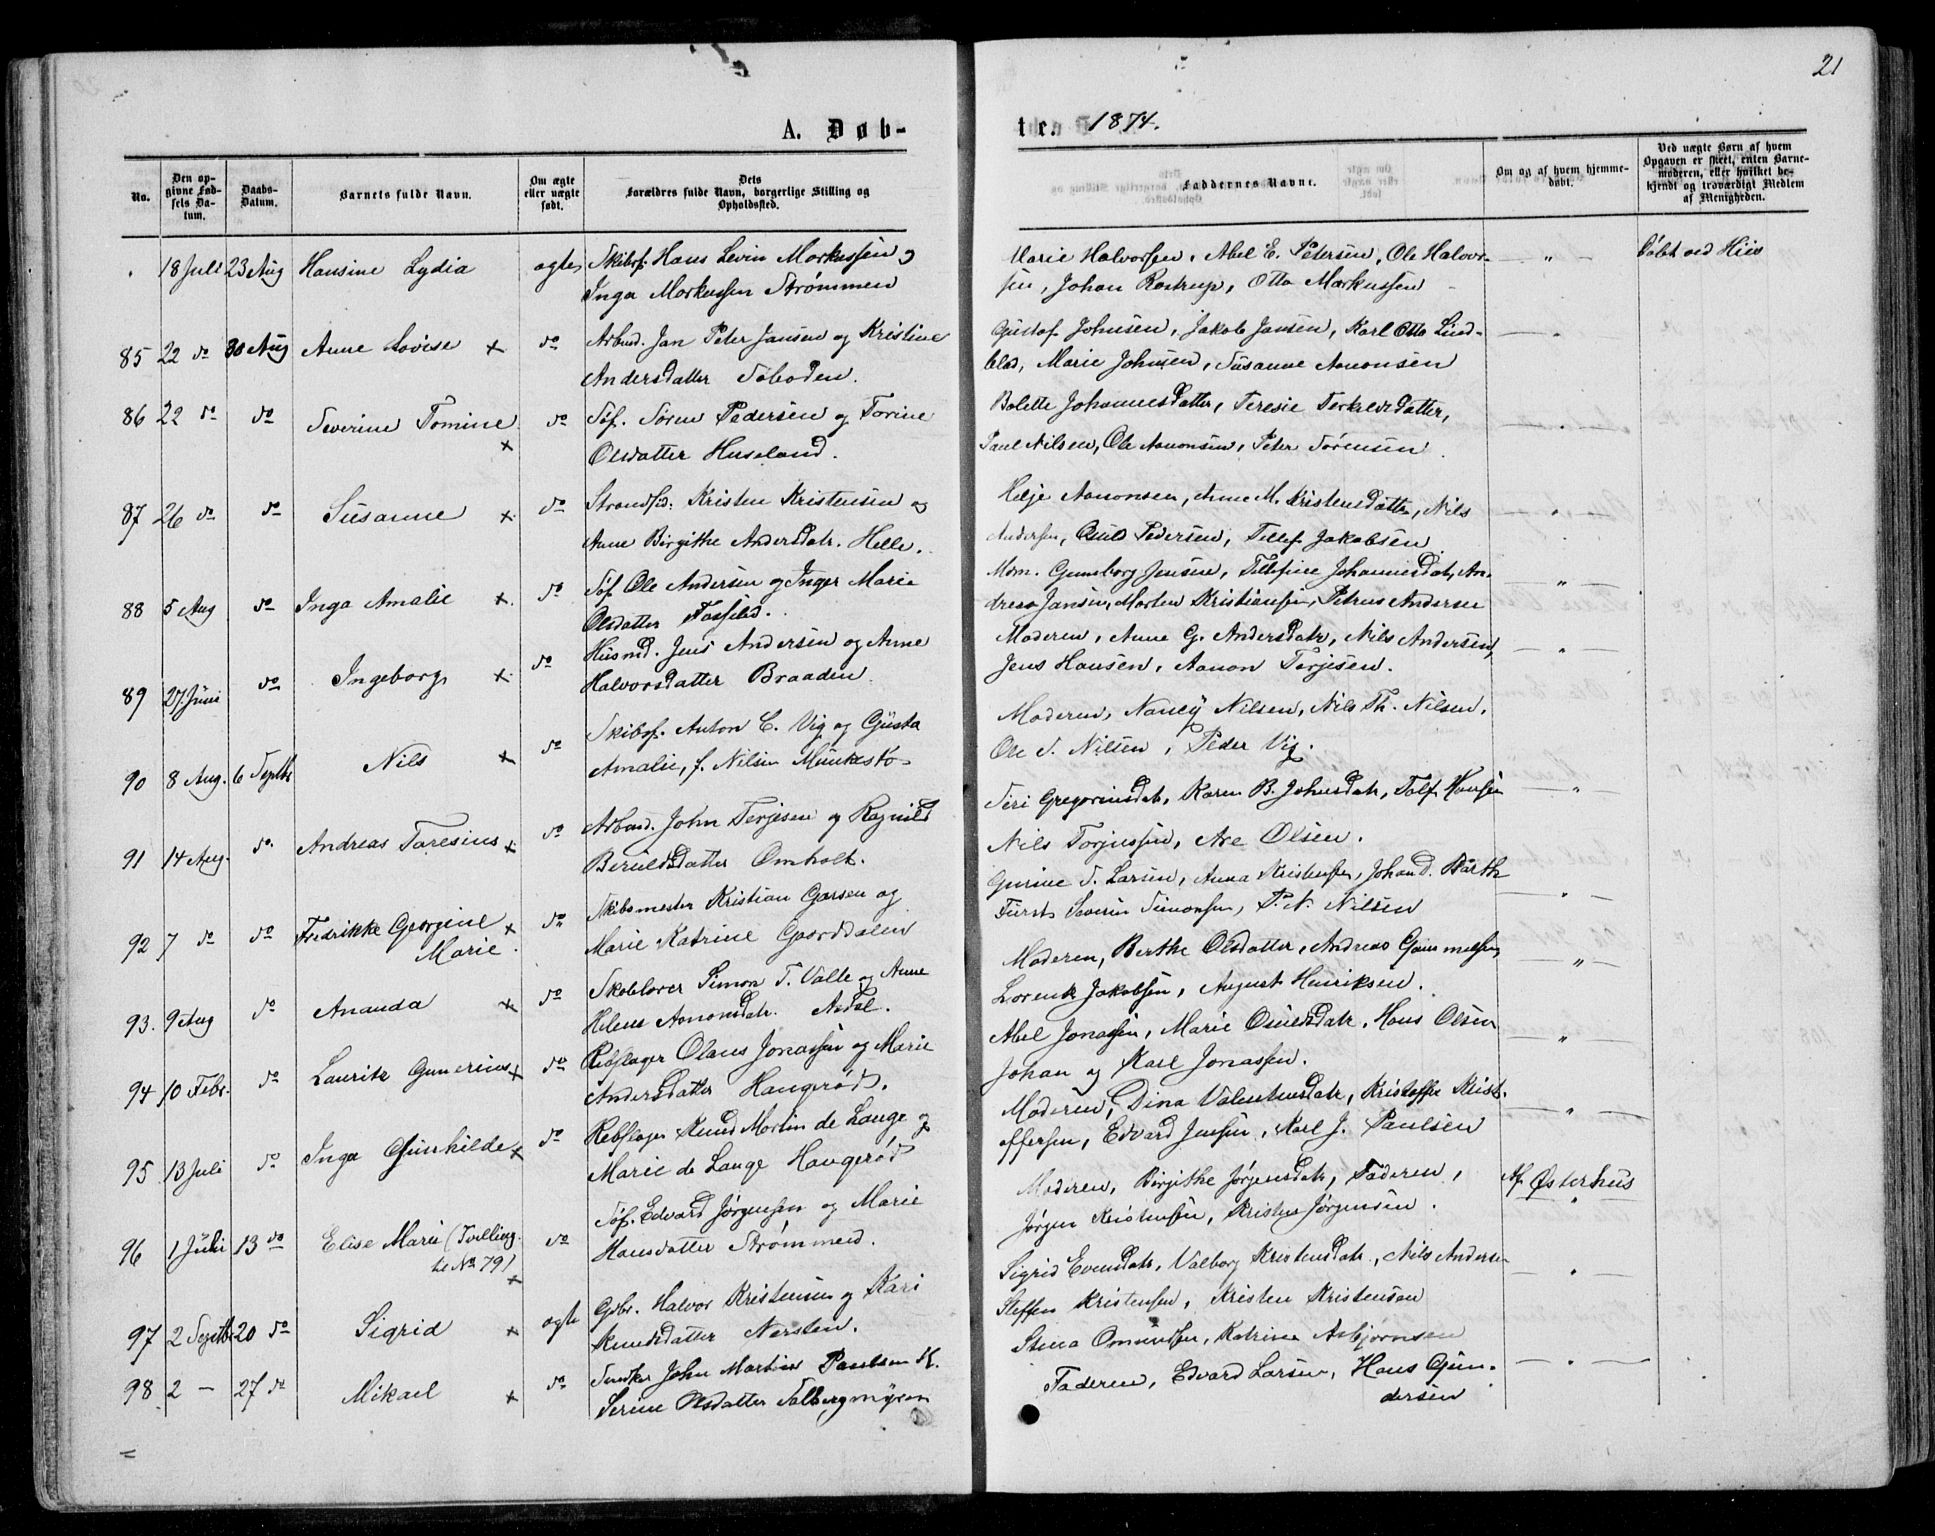 21
A. Døb-
te. 1874.
No.
Den op-
givne Fød-
sels Da-
tum.
Daabs-
Datum.
Barnets fulde Navn.
Om ægte
eller uægte
født.
Dets
Forældres fulde Navn, borgerlige Stilling og
Opholdssted.
Faddernes Navne.
Om og af hvem hjemme-
døbt.
Ved uægte Børn af hvem
Opgaven er skeet, enten Barne-
moderen, eller hvilket be-
kjendt og troværdigt Medlem
af Menigheden.
18 Juli 23 Aug Hansine Lydia ægte Skibsf. Hans Levin Markussen og
Inga Markussen Strømmen
Marie Halvorsen, Abel E. Petersen, Ole Halvor-
sen, Johan Rostrup, Otto Markussen
— " — Døbt ved Hiis
85 22 do 30 Aug Anne Lovise x do Arbmd. Jan Peter Jansen og Kristine
Andersdatter Søboden.
Gustaf Johnsen, Jakob Jansen, Karl Otto Lind-
blad, Marie Johnsen, Susanne Aanonsen
86 22 do do Severine Tomine x do Søf. Søren Pedersen og Torine
Olsdatter Huseland.
Bolette Johannesdatter, Teresie Terkelsdatter,
Paul Nilsen, Ole Aanonsen, Peter Sørensen
87 26 do do Susanne x do Strandsid. Kristen Kristensen og
Anne Birgithe Andersdatr. Helle.
Helje Aanonsen, Anne M. Kristensdatter, Nils
Andersen, Osuld Pedersen, Tellef Jakobsen
88 5 Aug do Inga Amalie x do Søf. Ole Andersen og Inger Marie
Olsdatter Fossest.
Mdm. Gunnborg Jensen, Tellefine Johannesdatr, An-
dreas Jansen, Morten Kristiansen, Petrus Andersen
89 27 Juni do Ingeborg x do Husmd. Jens Andersen og Anne
Halvorsdatter Braaden
Moderen, Anne G. Andersdatr, Nils Andersen,
Jens Hansen, Aanon Terjesen.
90 8 Aug. 6 Septbr Nils x do Skibsf. Anton C. Vig og Gusta
Amalie, f. Nilsen Munkesto
Moderen, Nancy Nilsen, Nils Th. Nilsen,
Ole S. Nilsen, Peder Vig.
91 14 Aug. do Andreas Taresius x do Arbmd. John Terjesen og Ragnild
Beruldsdatter Omholt.
Siri Gregoriusdatr, Karen B. Johnsdatr, Tolf Hansen
Nils Torjussen, Are Olsen.
92 7 do do Fredrikke Georgine x
Marie.
do Skibsmester Kristian Garsen og
Marie Katrine Gaarddalen
Gurine S. Larsen, Anna Kristensen, Johan D. Barth
Fürst, Severin Simonsen, P. N. Nilsen
93. 9 Aug do Ananda x do Skolelærer Simon T. Valle og Anne
Helene Aanonsdatr. Asdal.
Moderen, Berthe Olsdatter, Andreas Gammelsen,
Lorentz Jakobsen, August Henriksen.
94 10 Febr. do Lauritz Gunerius x do Rebslager Olaus Jonassen og Marie
Andersdatter Haugerød.
Abel Jonassen, Marie Osuldsdatr, Hans Olsen
Johan og Karl Jonassen.
95 13 Juli do Inga Gunhilde x do Rebslager Knud Martin de Lange og
Marie de Lange Haugerød
Moderen, Dina Valentinsdatr, Kristoffer Krist-
offersen, Edvard Jensen, Karl J. Paulsen
96 1 Juli 13 do Elise Marie (Tvilling
til No 79)
x
do Søf. Edvard Jørgensen og Marie
Hansdatter Strømmen.
Moderen, Birgithe Jørgensdatr, Faderen,
Jørgen Kristensen, Kristen Jørgensen.
Af Østerhus
97 2 Septbr 20 do Sigrid x ægte Gbr. Halvor Kristensen og Kari
Knudsdatter Nersten.
Sigrid Evensdatr, Valborg Kristensdatr, Nils Andersen
Steffen Kristensen, Kristen Kristensen
98 2 — 27 do Mikael x do John Martin Paulsen K.
Serine Olsdatter Solbergmyren
Stina Omundsen, Katrine Asbjørnsen
Faderen, Edvard Larsen, Hans Gun-
dersen